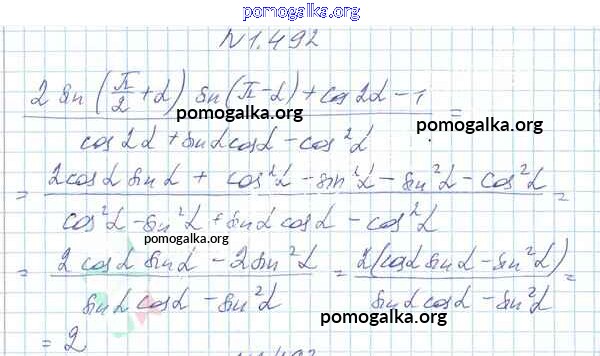 pomogalka.org
N 1.492
2 sin (π/2 + α) sin (π - α) + cos 2α - 1 / cos 2α + sin α cos α - cos²α =
pomogalka.org
pomogalka.org
= 2 cos α sin α + cos²α - sin²α - sin²α - cos²α / cos²α - sin²α + sin α cos α - cos²α =
pomogalka.org
= 2 cos α sin α - 2 sin²α / sin α cos α - sin²α = 2(cos α sin α - sin²α) / sin α cos α - sin²α =
pomogalka.org
= 2